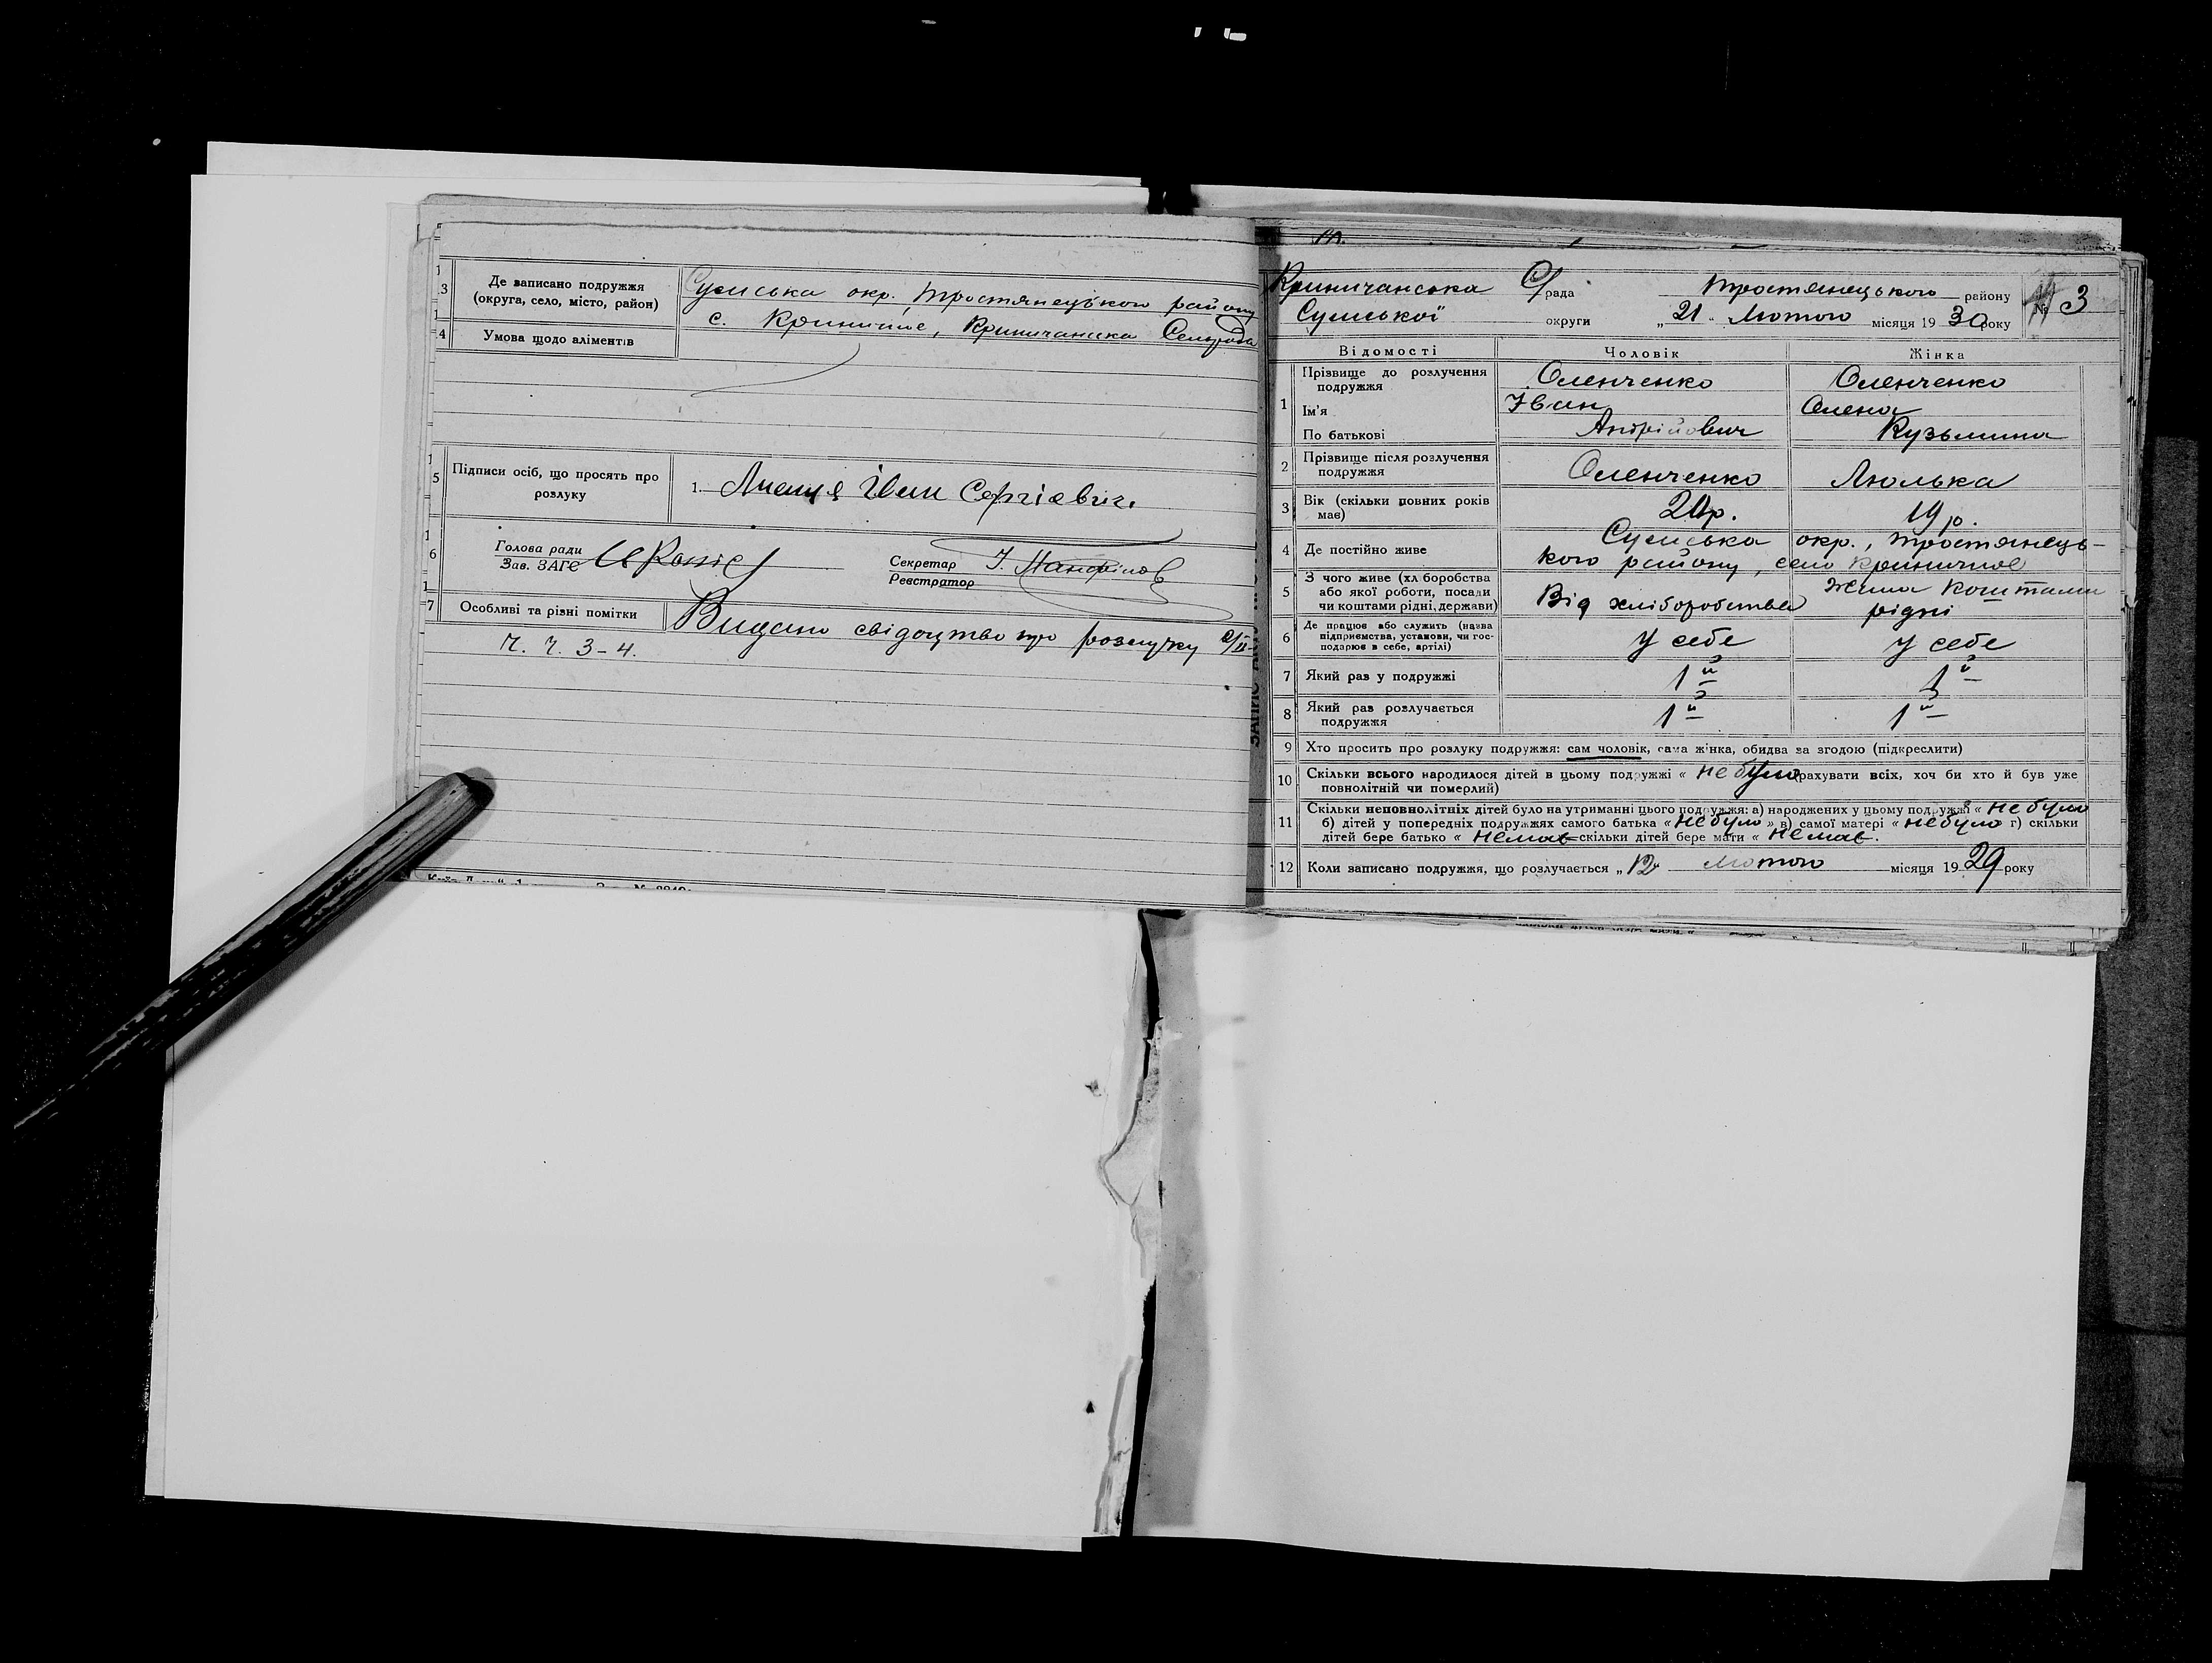 13 Де записано подружжя (округа, село, місто, район) Сумська окр., Тростянецького району
с. Криничне, Криничанська Сельрада
14 Умова щодо аліментів
15 Підписи осіб, що просять про розлуку
1. Іван Сергіевич
16 Голова ради
Зав. ЗАГС
Секретар
Реєстратор
17 Особливі та різні помітки Видано свідоцтво про розлучку
Ч. Ч. 3-4.
Криничанська С/рада Тростянецького району № 3
Сумської округи „21" Лютого місяця 1930 року
Відомості Чоловік Жінка
1 Прізвище до розлучення подружжя Оленченко Оленченко
Ім'я Іван Олена
По батькові Андрійович Кузьмина
2 Прізвище після розлучення подружжя Оленченко Люлька
3 Вік (скільки повних років має) 20р. 19р.
4 Де постійно живе Сумська окр., Тростянець-
кого району, село Криничное
5 З чого живе (хліборобства або якої роботи, посади чи коштами рідні, держави) Від хліборобства Жила коштами рідні
6 Де працює або служить (назва підприємства, установи, чи господарює в себе, артілі) У себе У себе
7 Який раз у подружжі 1й 1й
8 Який раз розлучається подружжя 1й 1й
9 Хто просить про розлуку подружжя: сам чоловік, сама жінка, обидва за згодою (підкреслити)
10 Скільки всього народилося дітей в цьому подружжі « не було рахувати всіх, хоч би хто й був уже
повнолітній чи померлий)
11 Скільки неповнолітніх дітей було на утриманні цього подружжя: а) народжених у цьому подружжі « не було
б) дітей у попередніх подружжях самого батька « не було » в) самої матері « не було г) скільки
дітей бере батько « немає скільки дітей бере мати « немає.
12 Коли записано подружжя, що розлучається „12" лютого місяця 1929 року